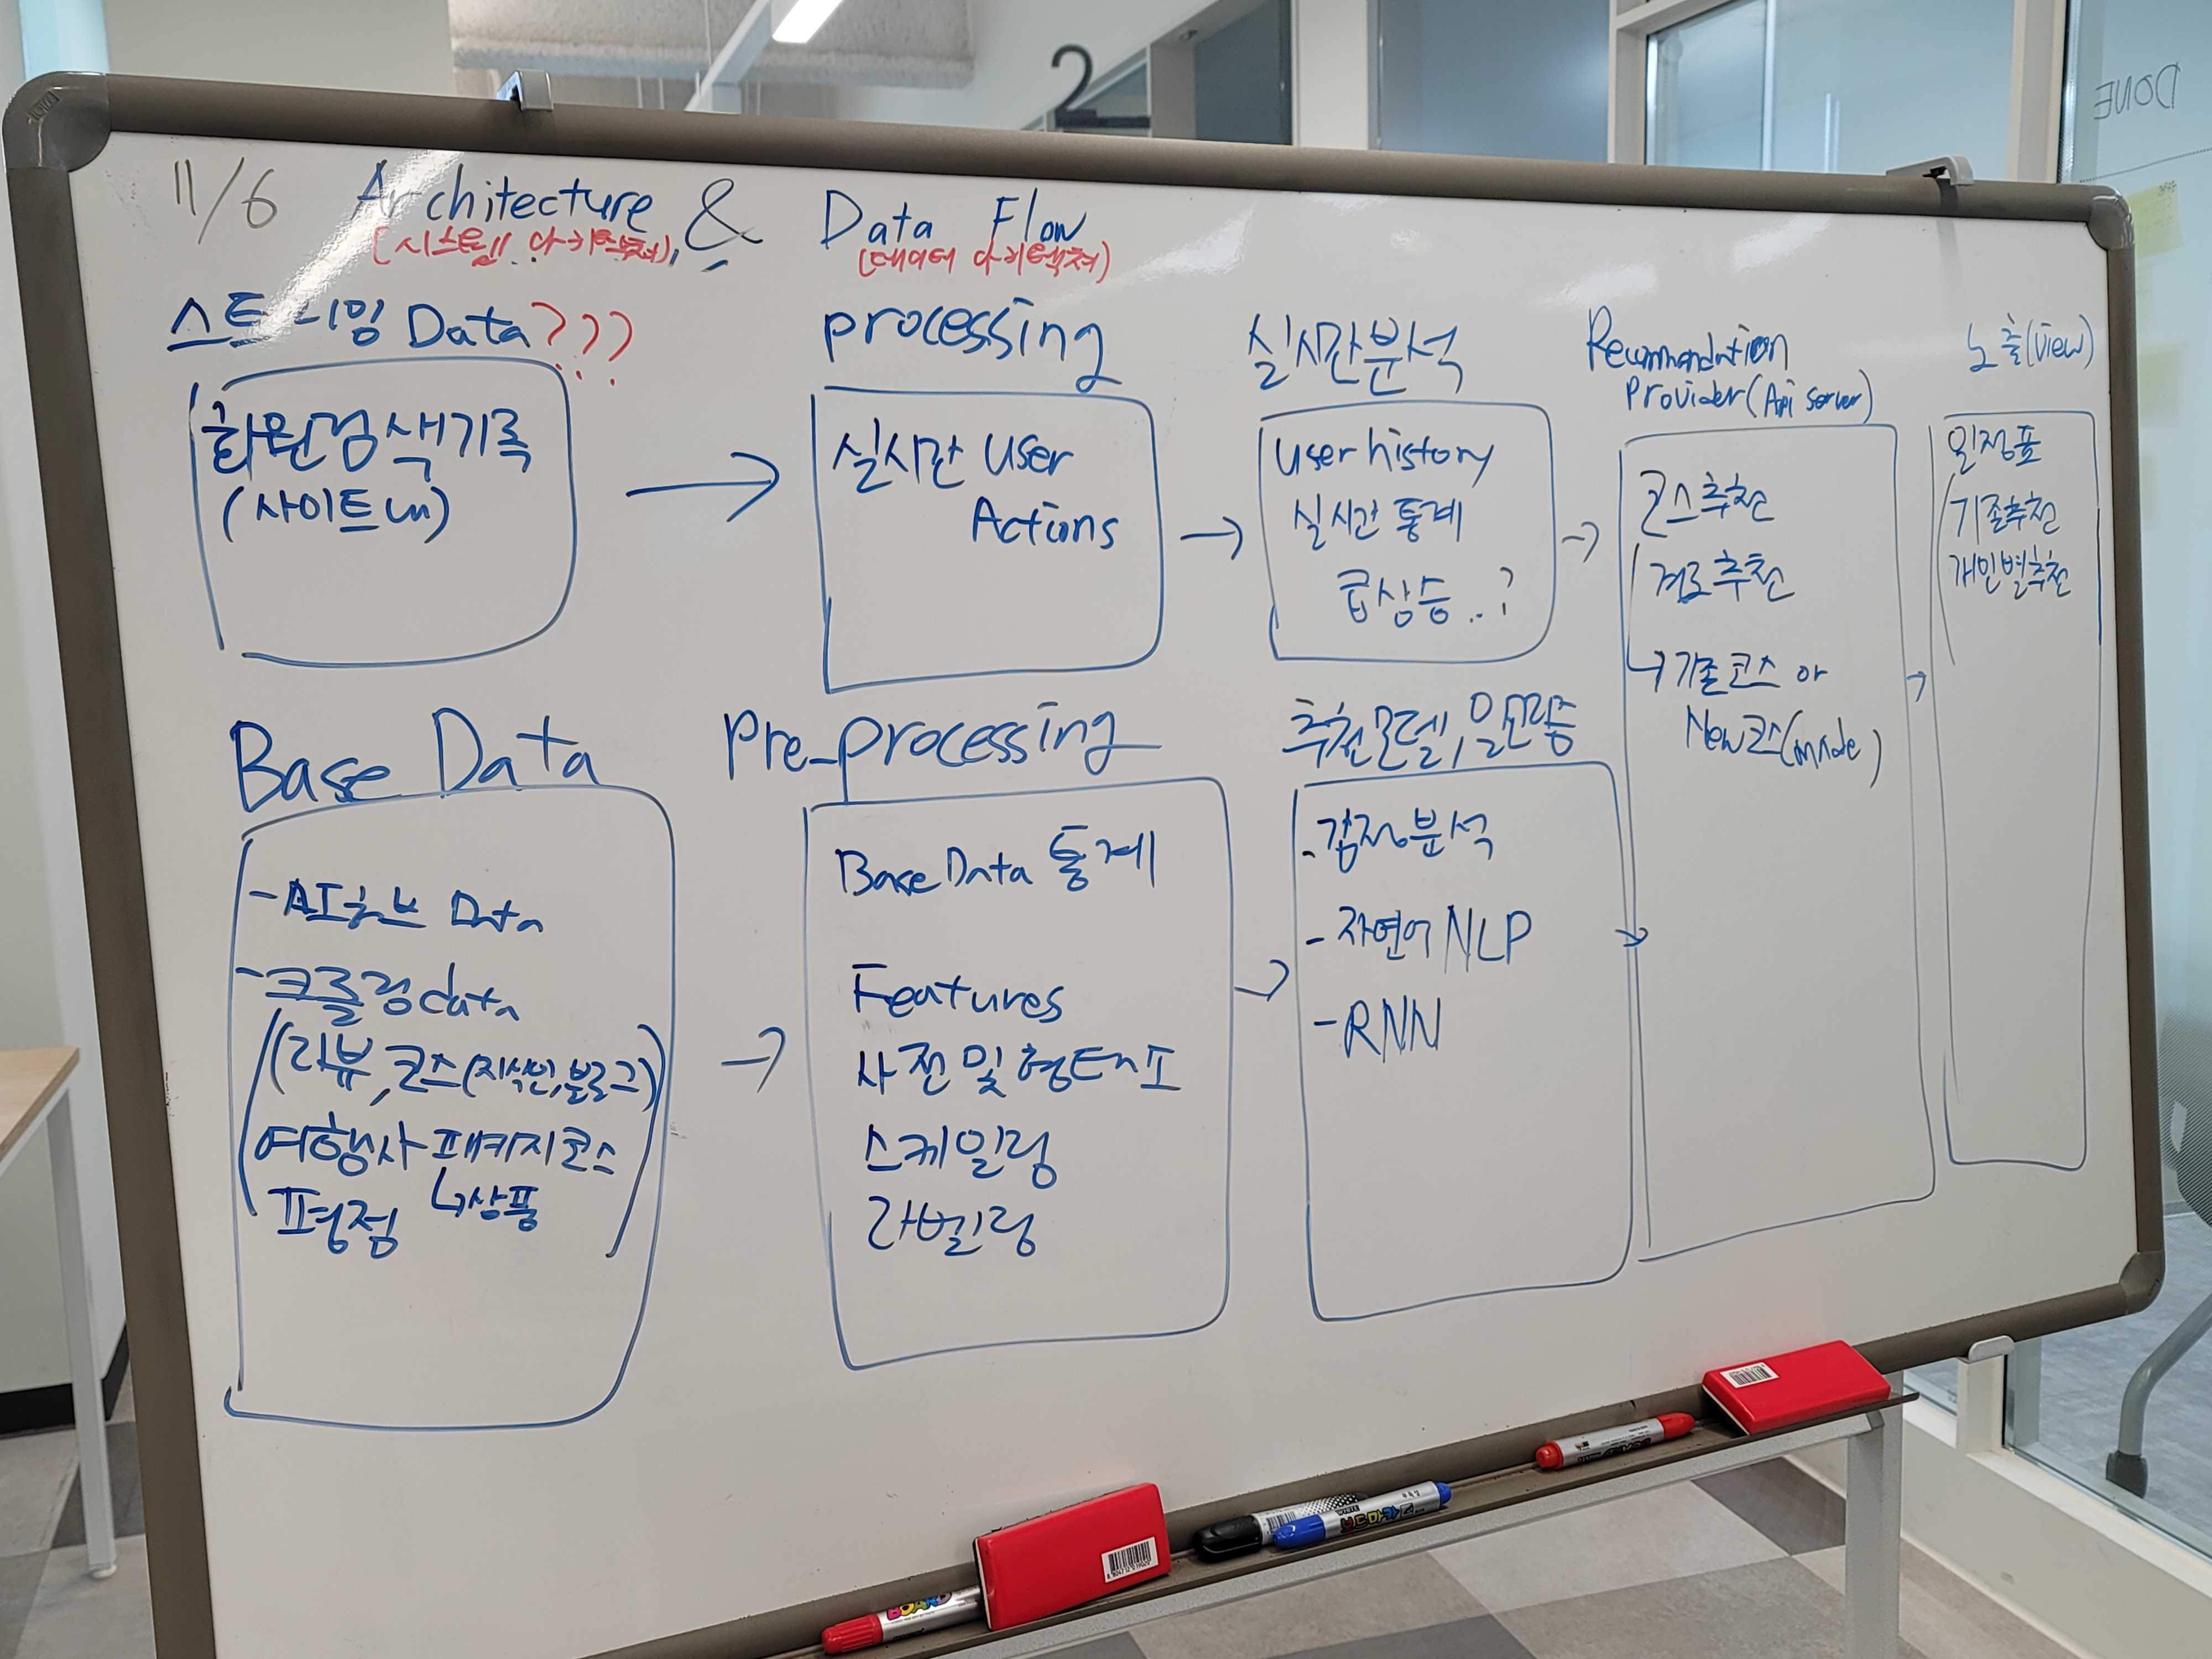 11/6 Architecture & Data Flow
(시스템 아키텍쳐), (데이터 아키텍쳐)
스트리밍 Data???
회원검색기록
(사이트내)
processing
실시간 User
Actions
실시간분석
User history
실시간 통계
급상승..?
Recommandation
Provider (Api server)
코스추천
경로추천
기존코스 or
New코스(made)
노출(view)
일정표
기존추천
개인별추천
Base Data
-AI허브 Data
-크롤링data
(리뷰, 코스(지식인,블로그)
여행사 패키지코스
↳상품
평점
Pre-processing
Base Data 통계
Features
사전 및 형태소
스케일링
라벨링
추천모델,
-감정분석
-자연어 NLP
-RNN
DONE
2
BOARD